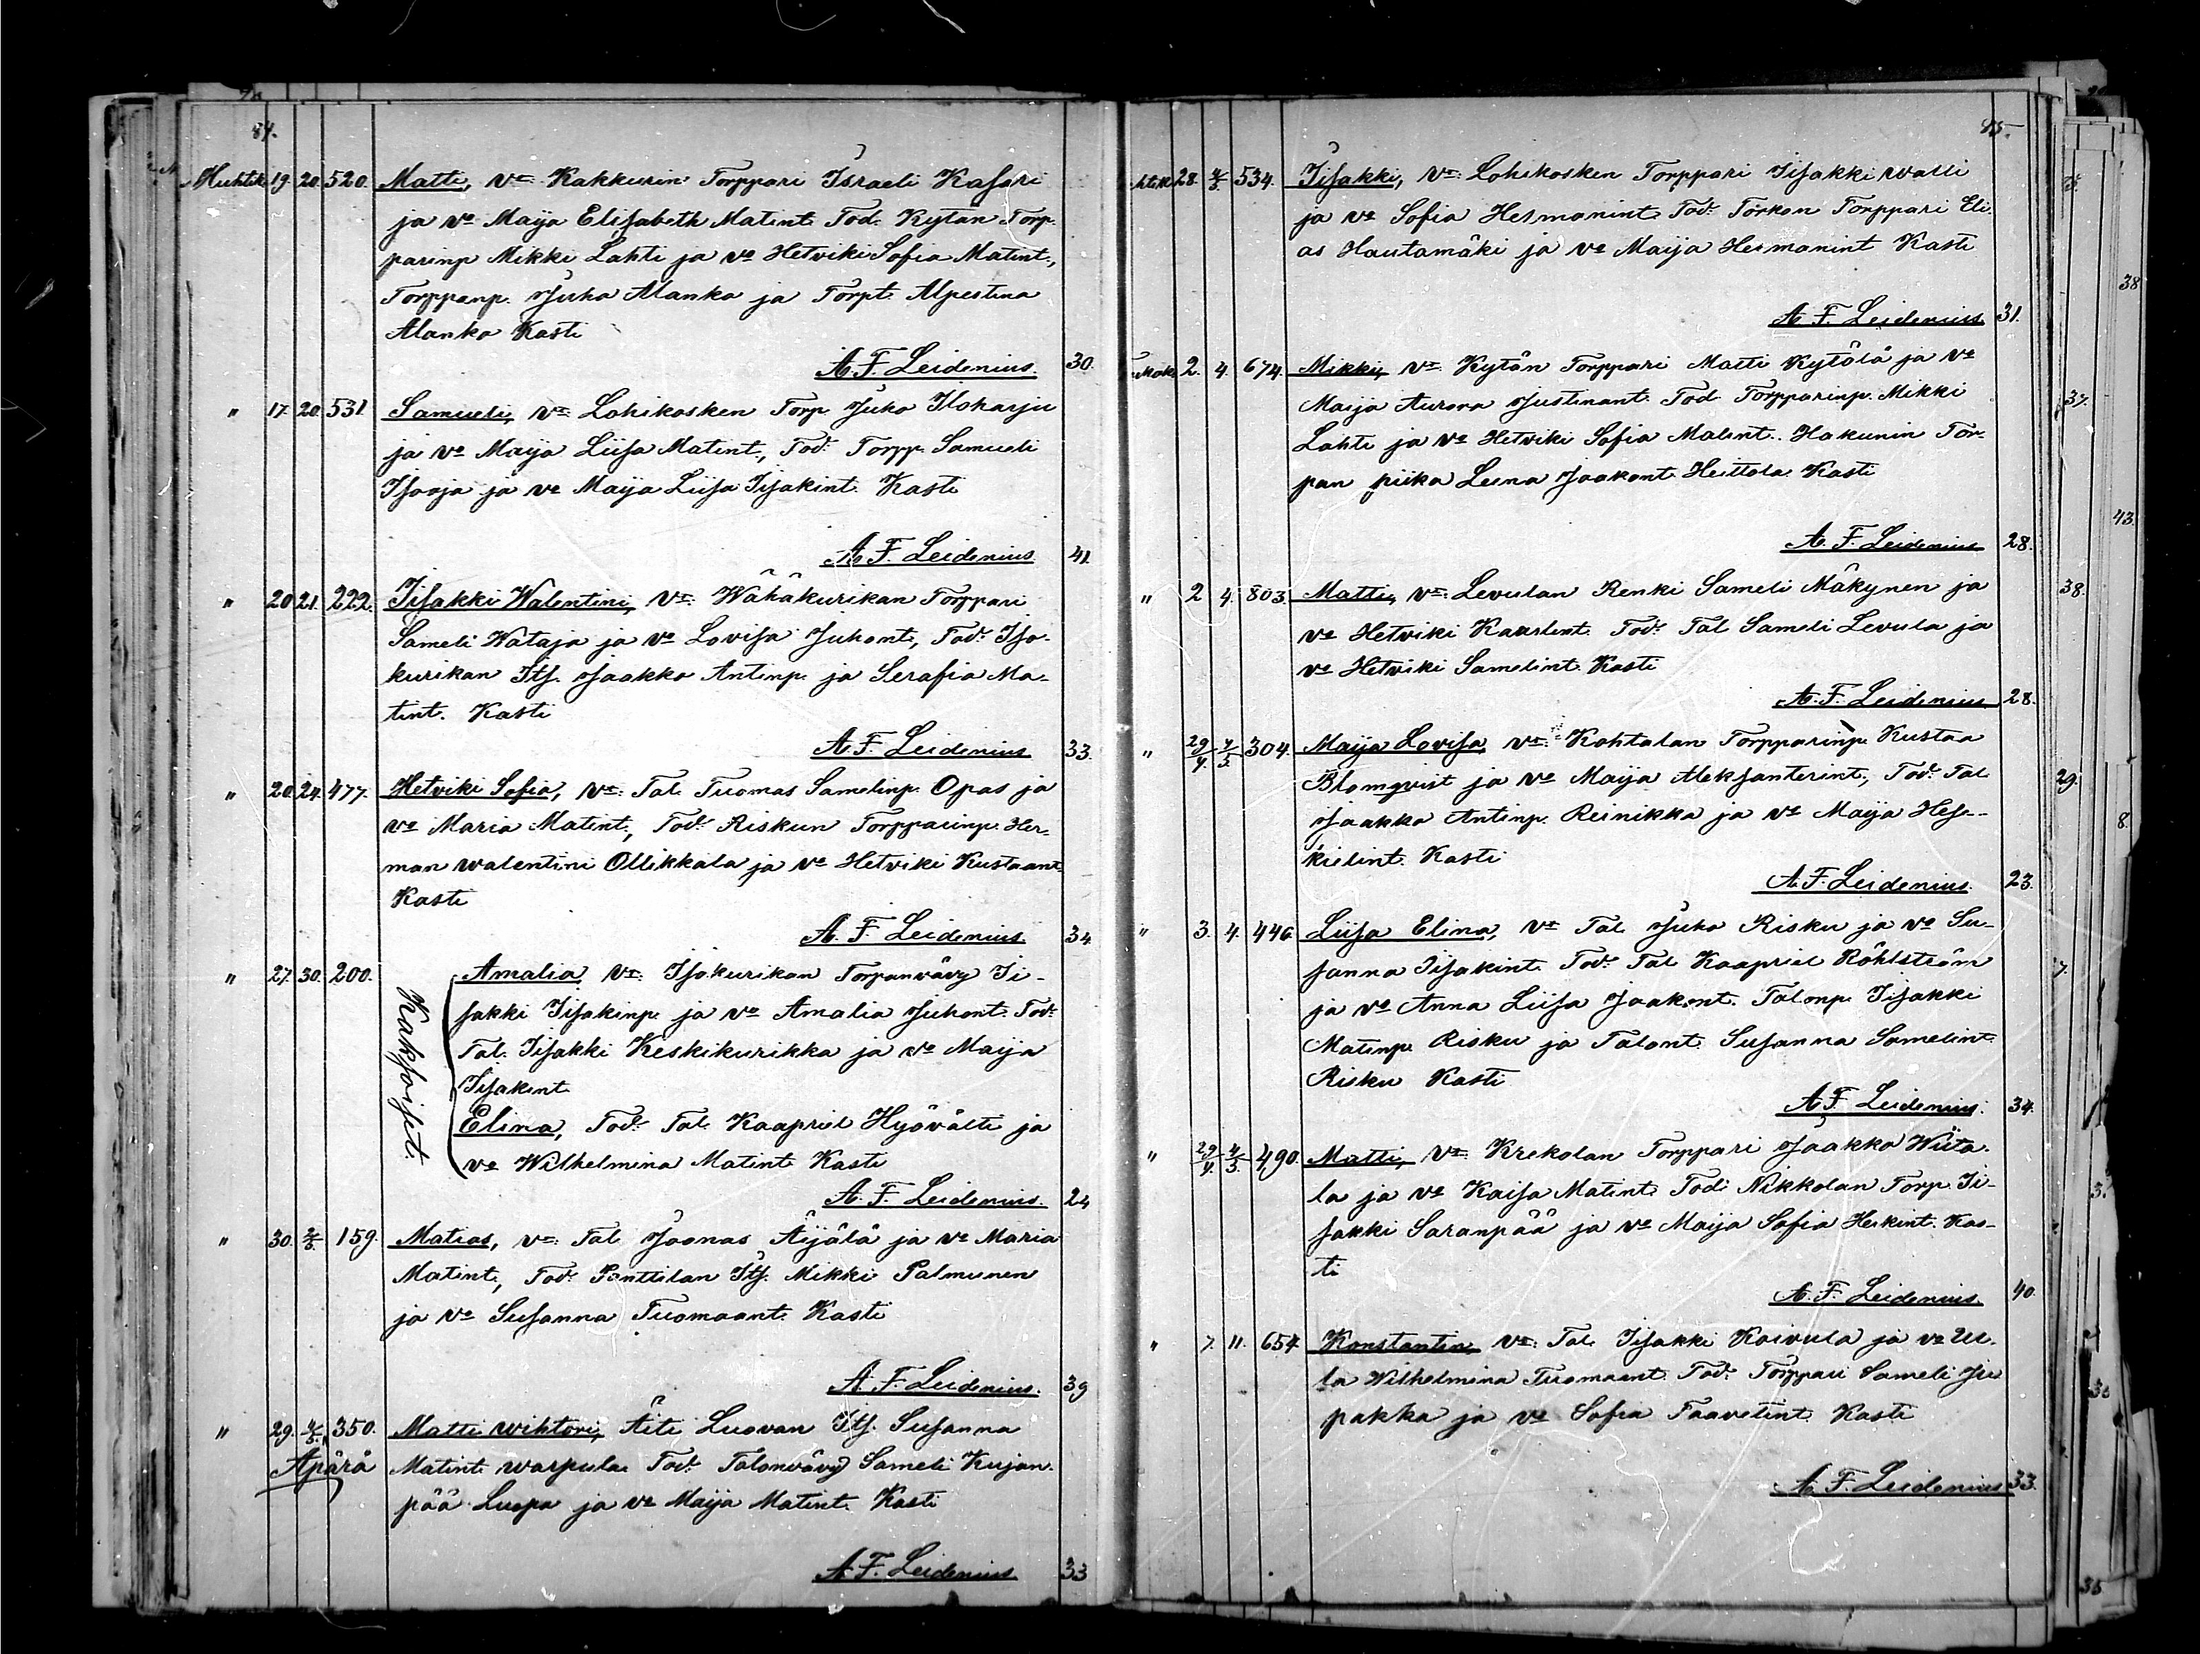 84.
Huhtik 19. 20. 520. Matti, vt Kakkurin Torppari Israeli Kasari
ja vo Maija Elisabeth Matint. Tod. Kytan Torp-
parinp Mikki Lahti ja vo Hetviki Sofia Matint.,
Torppanp. Juho Alanko ja Torpt. Alpestina
Alanko Kasti
A. F. Leidenius. 30.
" 17. 20. 531 Samueli, vt Lohikosken Torp Juho Iloharju
ja vo Maija Liisa Matint., Tod: Torpp. Samueli
Isooja ja vo Maija Liisa Iisakint. Kasti
A. F. Leidenius. 41.
" 20 21. 222. Iisakki Walentini, vt: Wähäkurikan Torppari
Sameli Wataja ja vo Lovisa Juhont., Tod: Iso-
kurikan Its. Jaakko Antinp. ja Serafia Ma-
tint. Kasti
A. F. Leidenius 33.
" 20. 24. 477. Hetviki Sofia, vt: Tal. Tuomas Samelinp. Opas ja
vo Maria Matint., Tod: Riskun Torpparinp. Her-
man Walentini Ollikkala ja vo Hetviki Kustaant.
Kasti
A. F. Leidenius. 34
" 27. 30. 200. Kaksoiset. Amalia vt: Isokurikan Torpanvävy Ii-
sakki Iisakinp. ja vo Amalia Juhont. Tod:
Tal. Iisakki Keskikurikka ja vo Maija
Iisakint.
Elina, Tod: Tal. Kaapriel Hyövälti ja
vo Wilhelmina Matint. Kasti
A. F. Leidenius. 24
" 30. 2/5. 159. Matias, vt: Tal Joonas Äijälä ja vo Maria
Matint., Tod: Panttilan Its. Mikki Palmunen
ja vo Susanna Tuomaant. Kasti
A. F. Leidenius. 39
" 29. 4/5. 350. Matti Wihtori, Äiti Luovan Its. Susanna
Äpärä Matint. Warpula. Tod: Talonvävy Sameli Kujan-
pää Luopa ja vo Maija Matint. Kasti
A. F. Leidenius 33
85.
htik 28. 4/5. 534. Iisakki, vt: Lohikosken Torppari Iisakki Walli
ja vo Sofia Hermanint. Tod: Törkön Torppari Eli-
as Hautamäki ja vo Maija Hermanint Kasti
A. F. Leidenius 31.
Touk 2. 4. 674. Mikki, vt: Kytän Torppari Matti Kytölä ja vo
Maija Aurora Justinant. Tod Torpparinp. Mikki
Lahti ja vo Hetviki Sofia Matint. Hakunin Tor-
pan piika Leena Jaakont. Heittola Kasti
A. F. Leidenius 28.
" 2 4. 803. Matti, vt: Levulan Renki Sameli Mäkynen ja
vo Hetviki Kaarlent. Tod: Tal Sameli Levula ja
vo Hetviki Samelint. Kasti
A. F. Leidenius 28.
" 29/4. 4/5. 304. Maija Lovisa, vt: Kohtalan Torpparinp. Kustaa
Blomqvist ja vo Maija Aleksanterint., Tod: Tal
Jaakko Antinp. Reinikka ja vo Maija Hes-
kielint. Kasti
A. F. Leidenius. 23.
" 3. 4. 446. Liisa Elina, vt Tal. Juho Risku ja vo Su-
sanna Iisakint. Tod: Tal Kaapriel Röhlström
ja vo Anna Liisa Jaakont. Talonp. Iisakki
Matinp. Risku ja Talont. Susanna Samelint.
Risku Kasti
A. F. Leidenius. 34.
" 29/4. 4/5. 490. Matti, vt: Krekolan Torppari Jaakko Wiita-
la ja vo Kaisa Matint. Tod: Nikkolan Torp. Ii-
sakki Saranpää ja vo Maija Sofia Herkint. Kas-
ti
A. F. Leidenius. 40.
" 7. 11. 654 Konstantin, vt: Tal. Iisakki Koivula ja vo Ul-
la Wilhelmina Tuomaant. Tod: Torppari Sameli Ju
pakka ja vo Sofia Taavetint. Kasti
A. F. Leidenius 33.